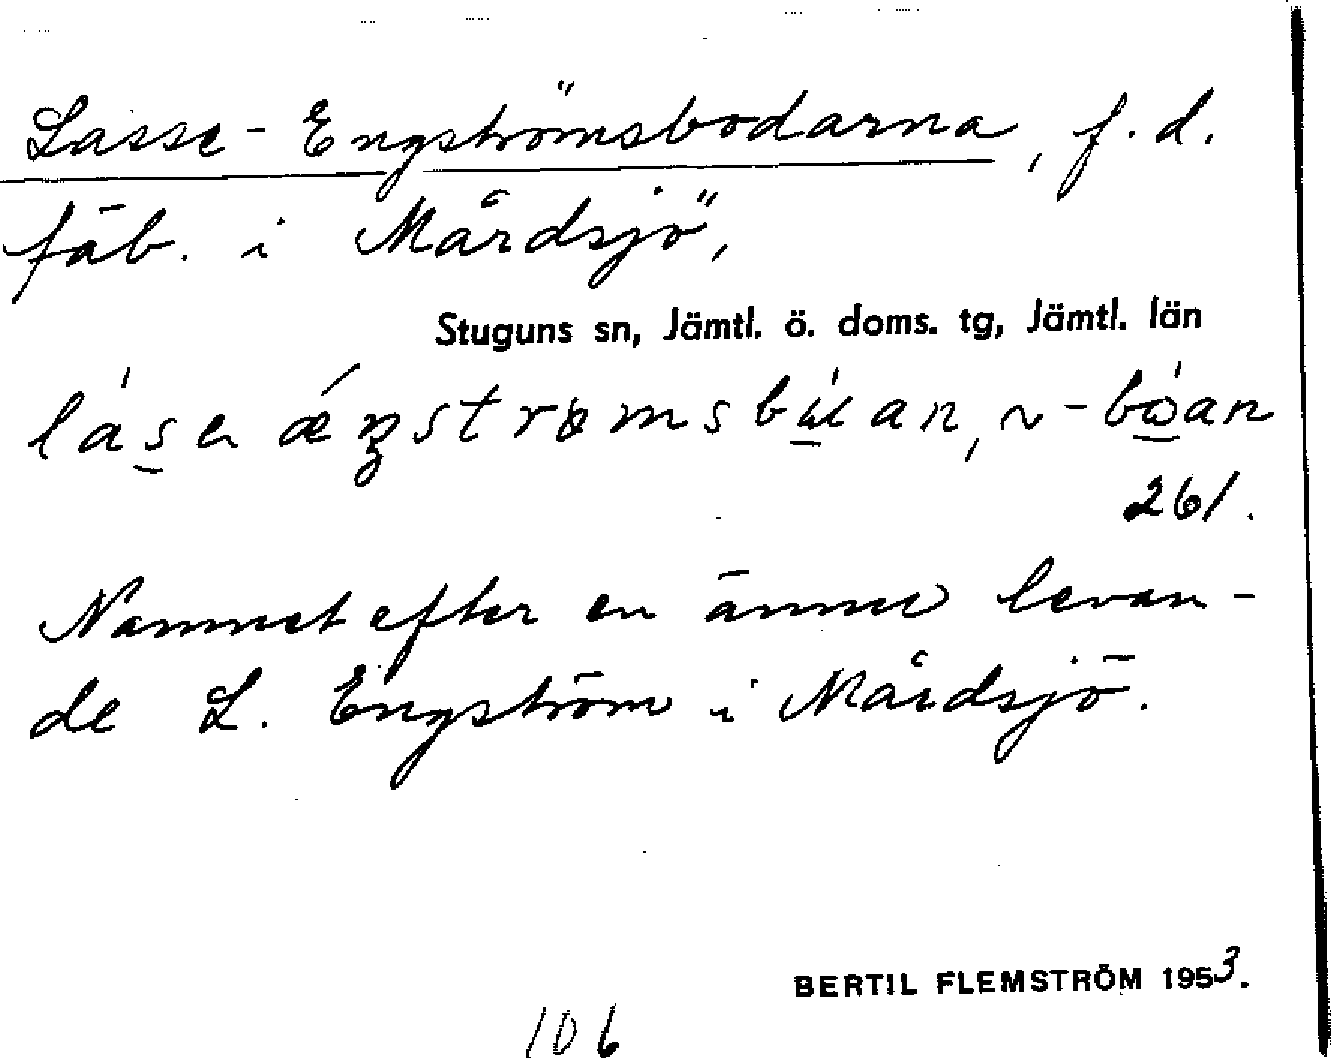 Lasse-Engströmsbodarna, f.d.
fäb. i Mårdsjö,
Stuguns sn, Jämtl. ö. doms. tg, Jämtl. län
261.
Namnet efter en ännu levan-
de L. Engström i Mårdsjö.
BERTIL FLEMSTRÖM 1953.
106